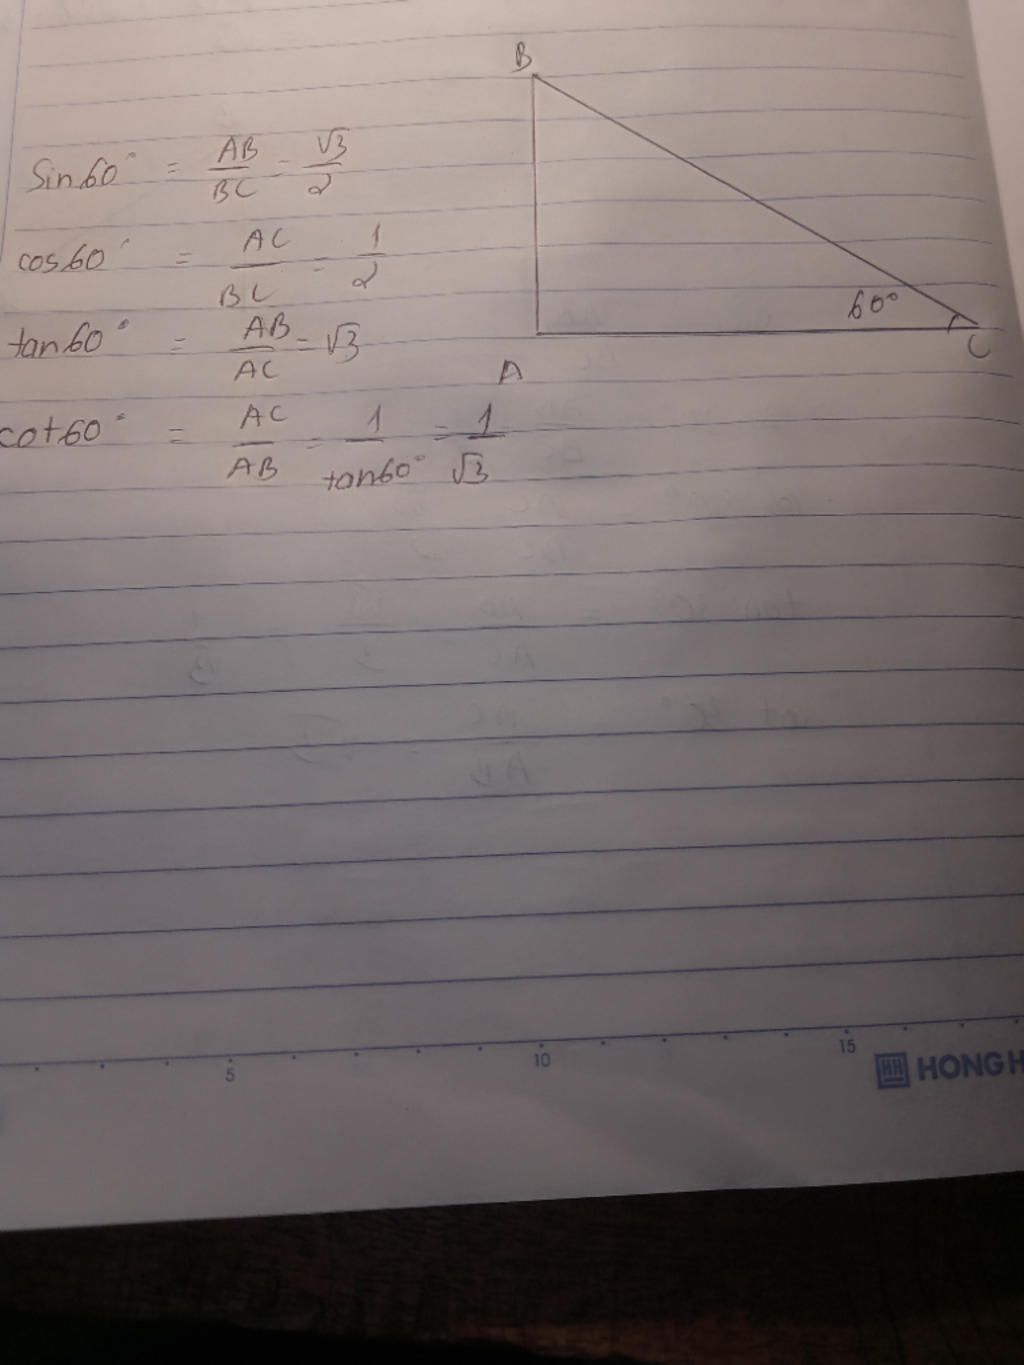 B
sin60° = AB/BC = √3/2
cos60° = AC/BC = 1/2
60°
C
tan60° = AB/AC = √3
A
cot60° = AC/AB = 1/tan60° = 1/√3
5 10 15
HH HONG H